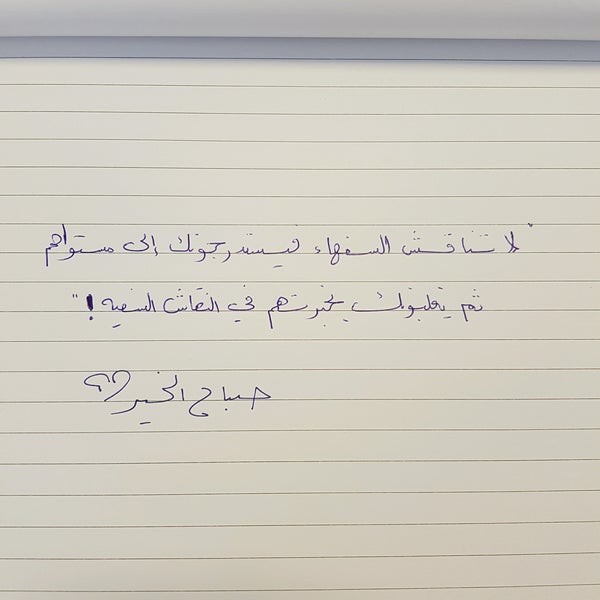 "لا تناقش السفهاء فيستدرجونك إلى مستواهم
ثم يغلبونك بخبرتهم في النقاش السفيه !"
صباح الخير ♡